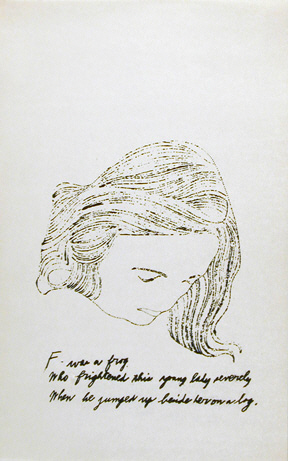 F. was a frog
Who frightened this young lady severely
When he jumped up beside her on a log.